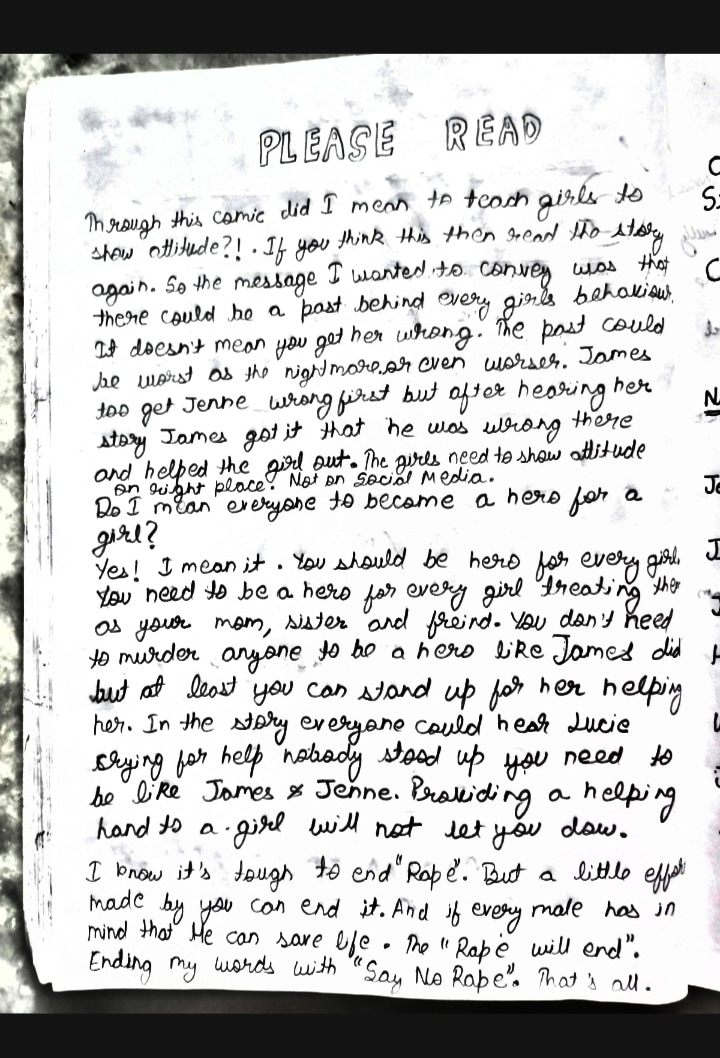 PLEASE READ
Through this comic did I mean to teach girls to
show attitude?!. If you think this then read the story
again. So the message I wanted to convey was that
there could be a past behind every girls behaviour.
It doesn't mean you get her wrong. The past could
be worst as the nightmare.or even worser. James
too get Jenne wrong first but after hearing her
story James got it that he was wrong there
and helped the girl out. The girls need to show attitude
on right place. Not on Social Media.
Do I mean everyone to become a hero for a
girl?
Yes! I mean it. You should be hero for every girl.
You need to be a hero for every girl treating the
as your mom, sister and freind. You don't need
to murder anyone to be a hero like James did
but at least you can stand up for her helping
her. In the story everyone could hear Lucie
crying for help nobody stood up you need to
be like James & Jenne. Providing a helping
hand to a girl will not let you dow.
I know it's tough to end "Rape". But a little effor
made by you can end it. And if every male has in
mind that He can save life. The "Rape will end".
Ending my words with "Say No Rape". That's all.
C
S
C
N
Je
J
J